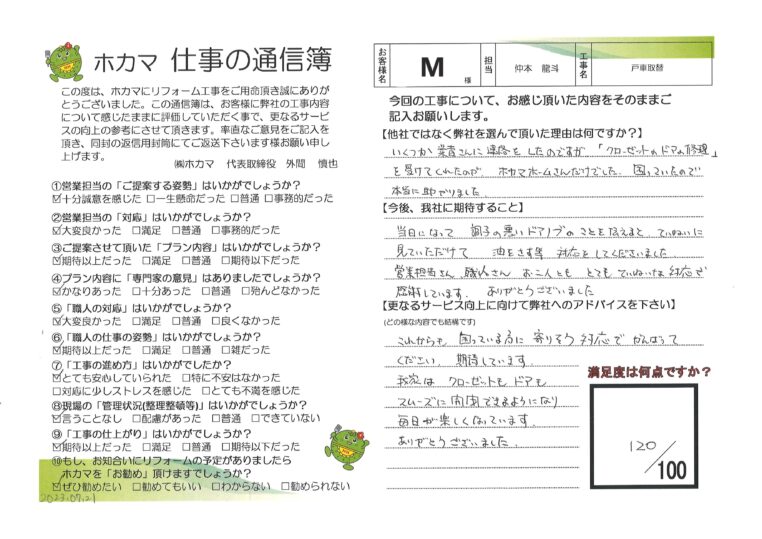 ホカマ 仕事の通信簿
この度は、ホカマにリフォーム工事をご用命頂き誠にありが
とうございました。この通信簿は、お客様に弊社の工事内容
について感じたままに評価していただく事で、更なるサービ
スの向上の参考にさせて頂きます。率直なご意見をご記入を
頂き、同封の返信用封筒にてご返送下さいます様お願い申し
上げます。
㈱ホカマ 代表取締役 外間 慎也
①営業担当の「ご提案する姿勢」はいかがでしょうか?
☑十分誠意を感じた □一生懸命だった □普通 □事務的だった
②営業担当の「対応」はいかがでしょうか?
☑大変良かった □満足 □普通 □事務的だった
③ご提案させて頂いた「プラン内容」はいかがでしょうか?
☑期待以上だった □満足 □普通 □期待以下だった
④プラン内容に「専門家の意見」はありましたでしょうか?
☑かなりあった □十分あった □普通 □殆んどなかった
⑤「職人の対応」はいかがでしょうか?
☑大変良かった □満足 □普通 □良くなかった
⑥「職人の仕事の姿勢」はいかがでしょうか?
☑期待以上だった □満足 □普通 □雑だった
⑦「工事の進め方」はいかがでしたか?
☑とても安心していられた □特に不安はなかった
□対応に少しストレスを感じた □とても不満を感じた
⑧現場の「管理状況(整理整頓等)」はいかがでしょうか?
☑言うことなし □配慮があった □普通 □できていない
⑨「工事の仕上がり」はいかがでしょうか?
☑期待以上だった □満足 □普通 □期待以下だった
⑩もし、お知合いにリフォームの予定がありましたら
ホカマを「お勧め」頂けますでしょうか?
☑ぜひ勧めたい □勧めてもいい □わからない □勧められない
2023.07.21
お客様名 M 様 担当 仲本 龍斗 工事名 戸車取替
今回の工事について、お感じ頂いた内容をそのままご
記入お願いします。
【他社ではなく弊社を選んで頂いた理由は何ですか?】
いくつか業者さんに連絡をしたのですが 「クローゼットのドアの修理」
を受けてくれたのが、ホカマホームさんだけでした。困っていたので
本当に助かりました
【今後、我社に期待すること】
当日になって 調子の悪いドアノブのことを伝えると、ていねいに
見ていただけて 油をさす等 対応をしてくださいました
営業担当さん、職人さん お二人とも とてもていねいな対応で
感謝しています。ありがとうございました
【更なるサービス向上に向けて弊社へのアドバイスを下さい】
(どの様な内容でも結構です)
これからも 困っている方に 寄りそう対応で がんばって
ください。期待しています。
我家は クローゼットも ドアも
スムーズに開閉できるようになり
毎日が楽しくなっています。
ありがとうございました。
満足度は何点ですか?
120/100